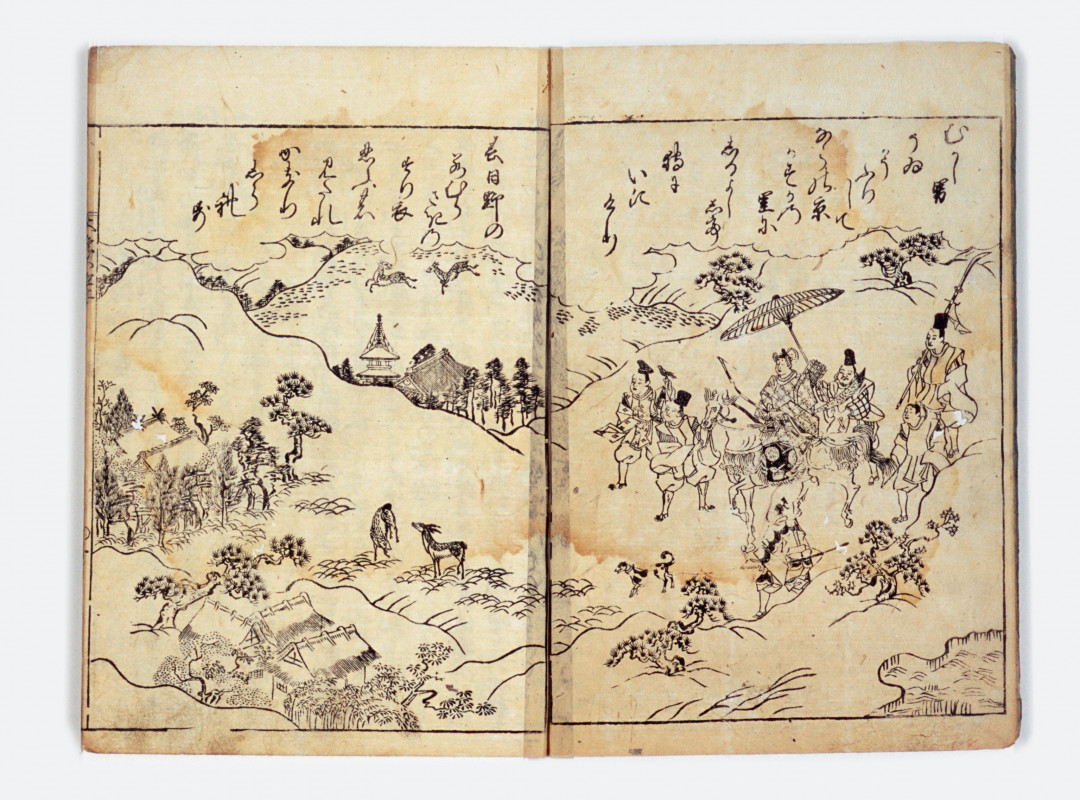 むかし男
うゐ
かうふり
して
ならの京
かすかの
里に
しるよし
して
狩に
いに
けり
春日野の
わかむら
さきの
すり衣
忍ふの
みたれ
かきり
しら
れ
す